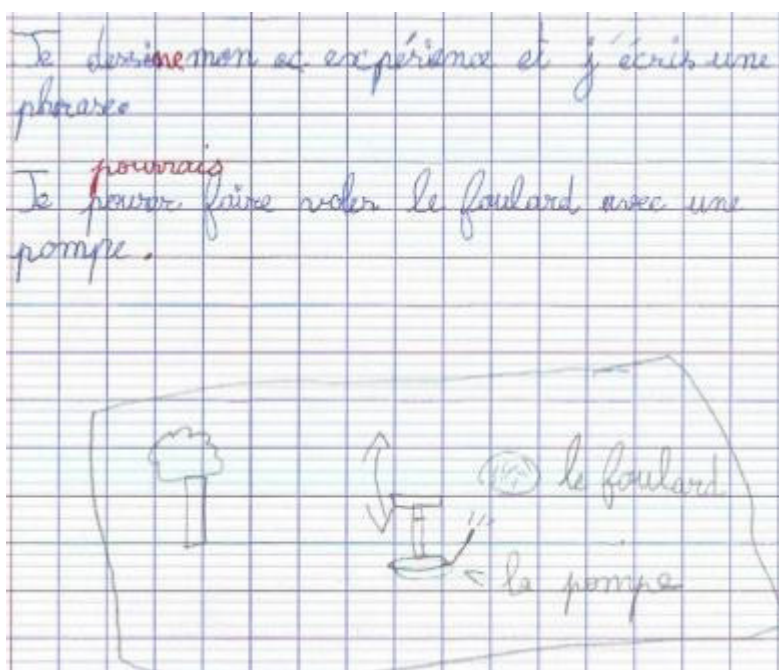 Je dessine mon ec expérience et j'écris une
phrase.
pourrais
Je pouvor faire voler le foulard avec une
pompe.
le foulard
la pompe